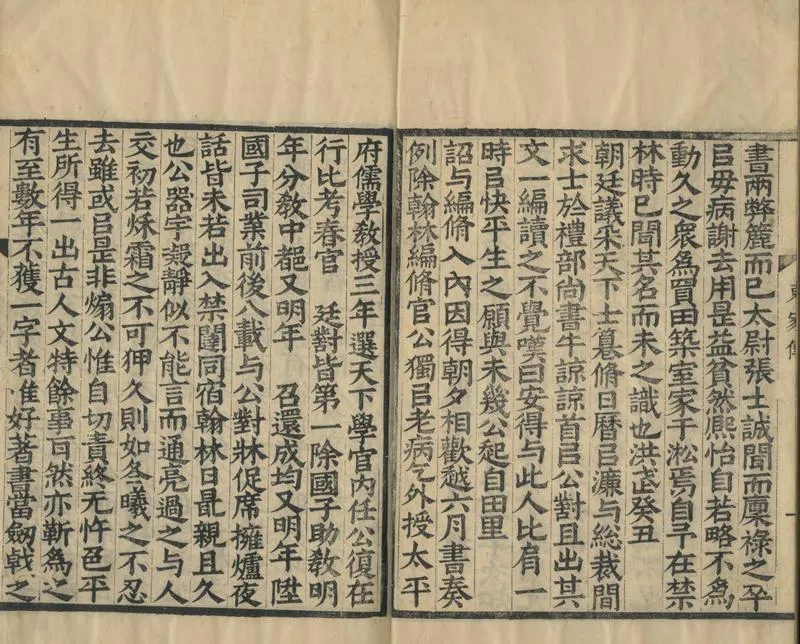 書兩弊簏而已太尉張士誠聞而廩祿之卒
㠯毋病謝去用是益貧然熈怡自若略不為
動久之衆為買田築室家于淞焉自予在禁
林時已聞其名而未之識也洪武癸丑
朝廷議采天下士篡脩日曆㠯濂与総裁間
求士於禮部尚書牛諒諒首㠯公對且出其
文一編讀之不覺嘆曰安得与此人比肩一
時㠯快平生之願與未幾公起自田里
詔与編脩入內因得朝夕相歡越六月書奏
例除翰林編脩官公獨㠯老病乞外授太平
府儒學敎授三年選天下學官內任公復在
行比考春官　廷對皆第一除國子助敎明
年分敎中都又明年　召還成均又明年陞
國子司業前後八載与公對牀促席擁爐夜
話皆未若出入禁闥同宿翰林日㝡親且久
也公器宇凝靜似不能言而通亮過之与人
交初若秌霜之不可狎久則如冬曦之不忍
去雖或㠯是非煽公惟自切責終无忤色平
生所得一出古人文特餘事百然亦靳為之
有至數年不獲一字者惟好著書當劔戟之